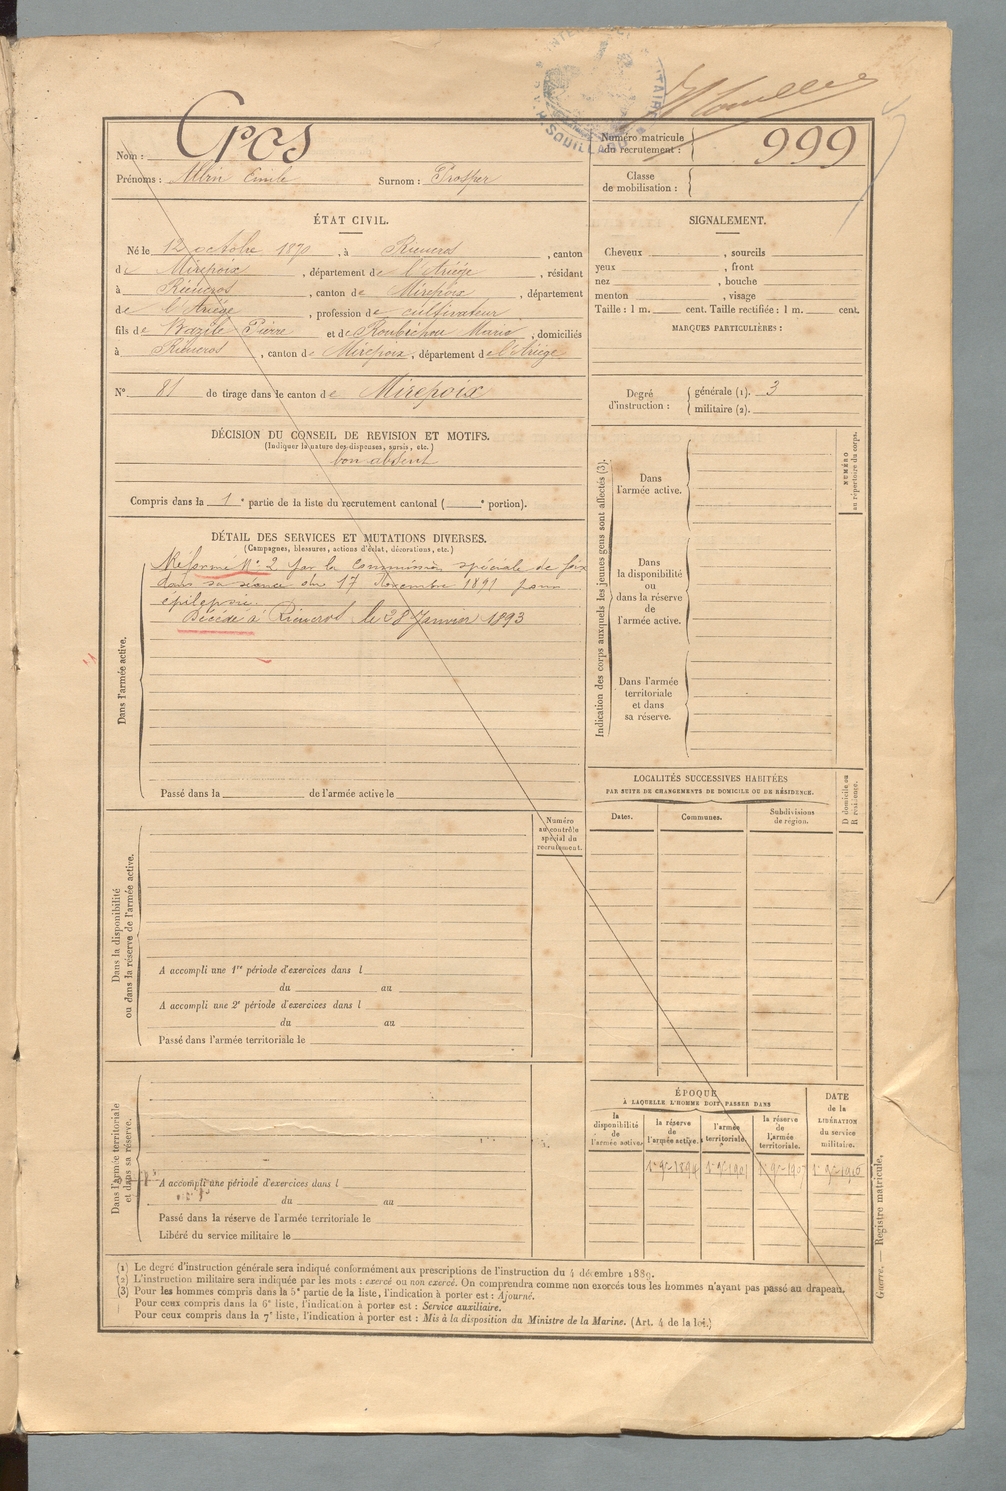 INTEN
ITAIRE
H. SOUILLARD
Nom : Cros
Prénoms : Albin Emile Surnom : Prosper
Numéro matricule
du recrutement : 999
Classe
de mobilisation :
ÉTAT CIVIL.
Né le 12 octobre 1870, à Rieucros, canton
de Mirepoix, département de l'Ariège, résidant
à Rieucros, canton de Mirepoix, département
de l'Ariège, profession de cultivateur
fils de Bazile Pierre et de Roubichou Marie, domiciliés
à Rieucros, canton de Mirepoix, département de l'Ariège
N° 81 de tirage dans le canton de Mirepoix
SIGNALEMENT.
Cheveux , sourcils
yeux , front
nez , bouche
menton , visage
Taille : 1 m. cent. Taille rectifiée : 1 m. cent.
MARQUES PARTICULIÈRES :
Degré
d'instruction :
générale (1). 3
militaire (2).
DÉCISION DU CONSEIL DE REVISION ET MOTIFS.
(Indiquer la nature des dispenses, sursis, etc.)
bon absent
Compris dans la 1e partie de la liste du recrutement cantonal ( e portion).
DÉTAIL DES SERVICES ET MUTATIONS DIVERSES.
(Campagnes, blessures, actions d'éclat, décorations, etc.)
Dans l'armée active.
Réformé N° 2 par la Commission spéciale de foix
dans sa séance du 17 Novembre 1891 pour
épilepsie.
Décédé à Rieucros le 28 Janvier 1893
Passé dans la de l'armée active le
Indication des corps auxquels les jeunes gens sont affectés (3).
Dans
l'armée active.
Dans
la disponibilité
ou
dans la réserve
de
l'armée active.
Dans l'armée
territoriale
et dans
sa réserve.
NUMÉRO
au répertoire du corps.
LOCALITÉS SUCCESSIVES HABITÉES
PAR SUITE DE CHANGEMENTS DE DOMICILE OU DE RÉSIDENCE.
Dates. Communes. Subdivisions
de région.
D domicile ou
R résidence.
Dans la disponibilité
ou dans la réserve de l'armée active.
Numéro
au contrôle
spécial du
recrutement.
A accompli une 1re période d'exercices dans l
du au
A accompli une 2e période d'exercices dans l
du au
Passé dans l'armée territoriale le
Dans l'armée territoriale
et dans sa réserve.
A accompli une période d'exercices dans l
du au
Passé dans la réserve de l'armée territoriale le
Libéré du service militaire le
ÉPOQUE
À LAQUELLE L'HOMME DOIT PASSER DANS
la
disponibilité
de
l'armée active.
la réserve
de
l'armée active.
l'armée
territoriale.
la réserve
de
l'armée
territoriale.
DATE
de la
LIBÉRATION
du service
militaire.
(1) Le degré d'instruction générale sera indiqué conformément aux prescriptions de l'instruction du 4 décembre 1889.
(2) L'instruction militaire sera indiquée par les mots : exercé ou non exercé. On comprendra comme non exercés tous les hommes n'ayant pas passé au drapeau.
(3) Pour les hommes compris dans la 5e partie de la liste, l'indication à porter est : Ajourné.
Pour ceux compris dans la 6e liste, l'indication à porter est : Service auxiliaire.
Pour ceux compris dans la 7e liste, l'indication à porter est : Mis à la disposition du Ministre de la Marine. (Art. 4 de la loi.)
Guerre. — Registre matricule.